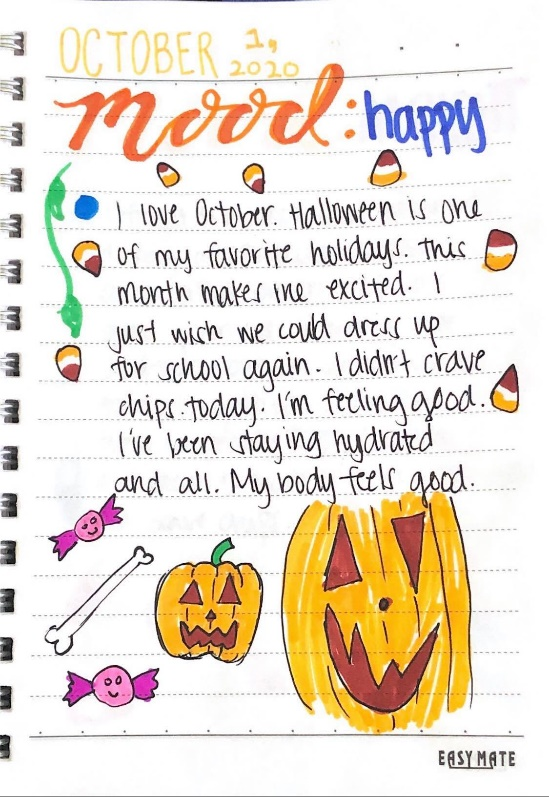 OCTOBER 1, 2020
mood: happy
I love October. Halloween is one
of my favorite holidays. This
month makes me excited. I
just wish we could dress up
for school again. I didn't crave
chips today. I'm feeling good.
I've been staying hydrated
and all. My body feels good.
EASY MATE